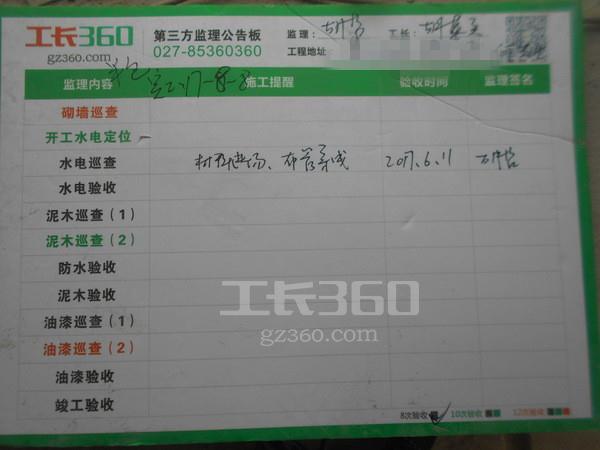 工长360
gz360.com
第三方监理公告板
027-85360360
监理：
工长：
工程地址：
监理内容 施工提醒 验收时间 监理签名
砌墙巡查
开工水电定位
水电巡查 材料进场、布管完成 2017.6.11
水电验收
泥木巡查（1）
泥木巡查（2）
防水验收
泥木验收
油漆巡查（1）
油漆巡查（2）
油漆验收
竣工验收
8次验收 10次验收 12次验收
工长360
gz360.com